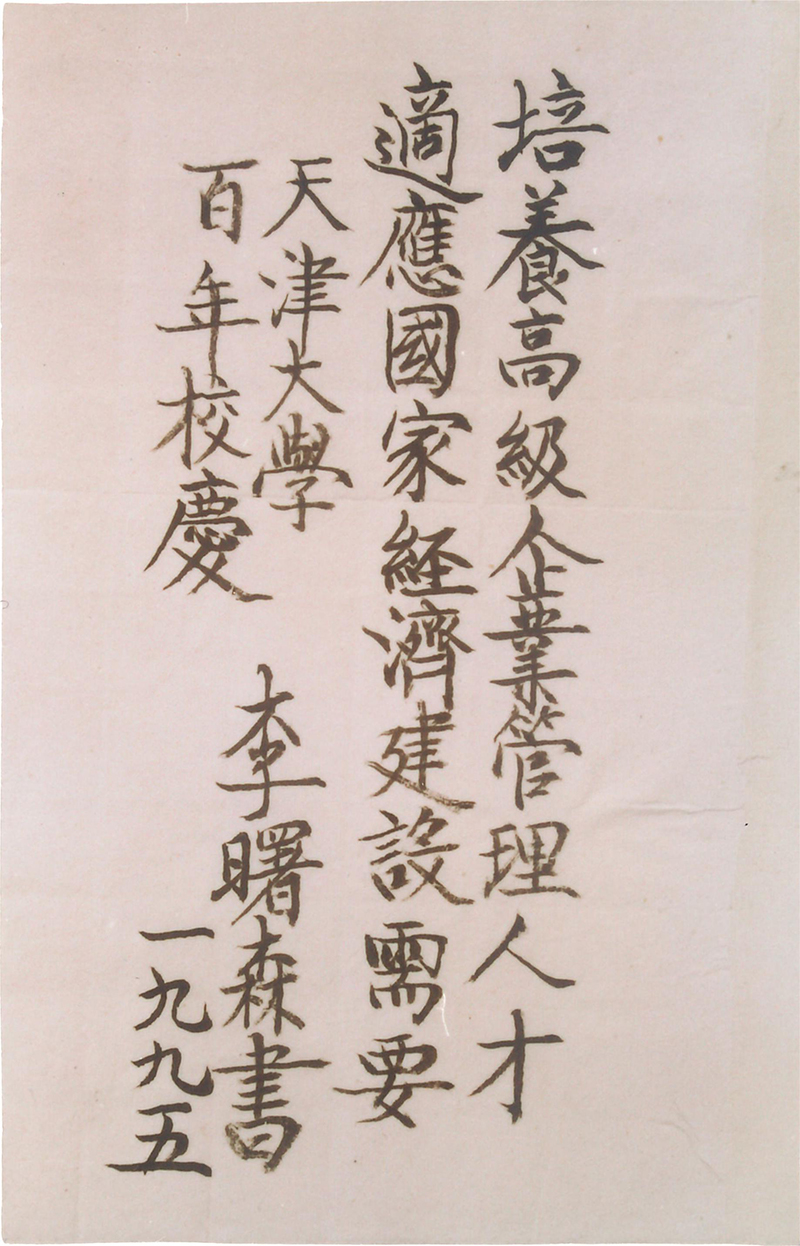 培養高級企業管理人才
適應國家経濟建設需要
天津大學
百年校慶
李曙森書
一九九五